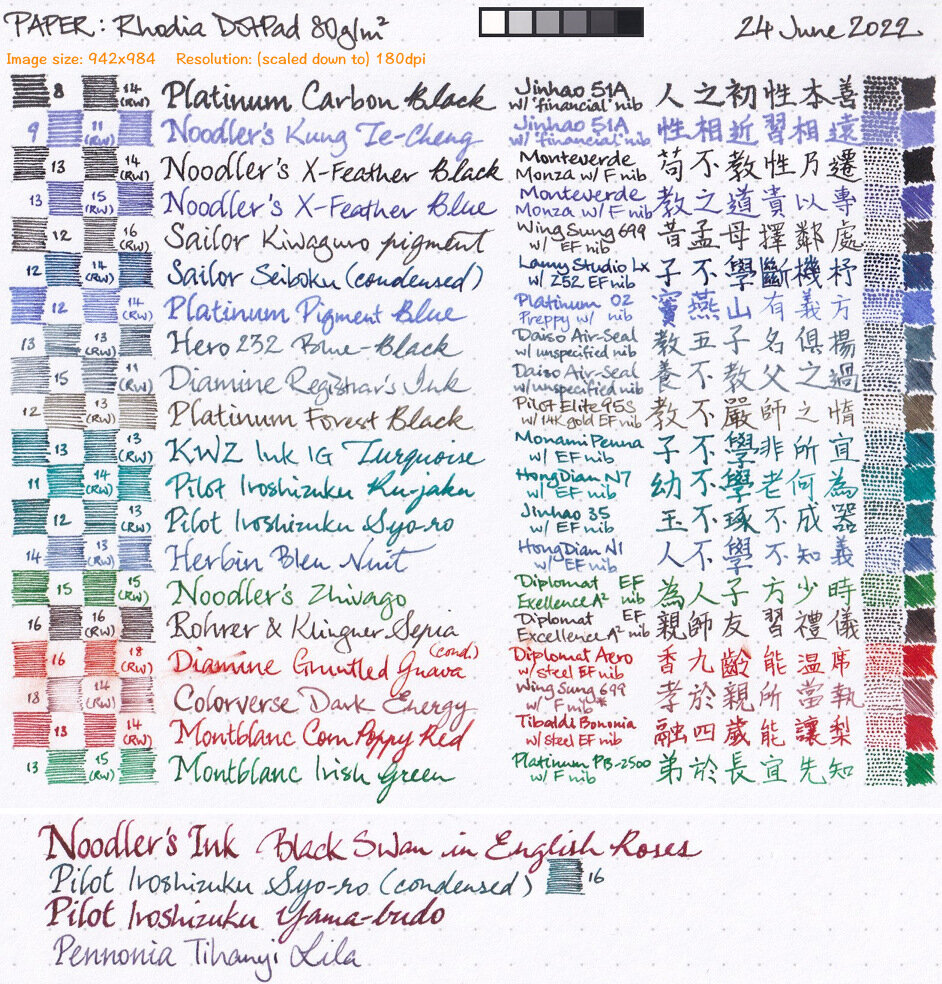 PAPER: Rhodia DotPad 80g/m² 24 June 2022
Image size: 942x984 Resolution: (scaled down to) 180dpi
8 14 (RW) Platinum Carbon Black Jinhao 51A w/ "financial" nib 人之初性本善
9 11 (RW) Noodler's Kung Te-Cheng Jinhao 51A w/ "financial" nib 性相近習相遠
13 14 (RW) Noodler's X-Feather Black Monteverde Monza w/ F nib 苟不教性乃遷
13 15 (RW) Noodler's X-Feather Blue Monteverde Monza w/ F nib 教之道貴以專
12 16 (RW) Sailor Kiwaguro pigment Wing Sung 699 w/ EF nib 昔孟母擇鄰處
12 14 (RW) Sailor Seiboku (condensed) Lamy Studio Lx w/ Z52 EF nib 子不學斷機杼
12 14 (RW) Platinum Pigment Blue Platinum 02 Preppy w/ nib 竇燕山有義方
13 13 (RW) Hero 232 Blue-Black Daiso Air-Seal w/ unspecified nib 教五子名俱揚
15 11 (RW) Diamine Registrar's Ink Daiso Air-Seal w/ unspecified nib 養不教父之過
12 13 (RW) Platinum Forest Black Pilot Elite 95S w/ 14K gold EF nib 教不嚴師之惰
13 13 (RW) KWZ Ink IG Turquoise Monami Penna w/ EF nib 子不學非所宜
11 14 (RW) Pilot Iroshizuku Ku-jaku HongDian N7 w/ EF nib 幼不學老何為
12 13 (RW) Pilot Iroshizuku Syo-ro Jinhao 35 w/ EF nib 玉不琢不成器
14 13 (RW) Herbin Bleu Nuit HongDian N1 w/ EF nib 人不學不知義
15 15 (RW) Noodler's Zhivago Diplomat EF Exellence A² nib 為人子方少時
16 16 (RW) Rohrer & Klingner Sepia Diplomat EF Excellence A² nib 親師友習禮儀
16 18 (RW) Diamine Gruntled Guava (cond.) Diplomat Aero w/ steel EF nib 香九齡能温席
18 14 (RW) Colorverse Dark Energy Wing Sung 699 w/ "F" nib* 孝於親所當執
13 14 (RW) Montblanc Corn Poppy Red Tibaldi Bononia w/ steel EF nib 融四歲能讓梨
13 15 (RW) Montblanc Irish Green Platinum PB-2500 w/ F nib 弟於長宜先知
Noodler's Ink Black Swan in English Roses
Pilot Iroshizuku Syo-ro (condensed) 16
Pilot Iroshizuku Yama-budo
Pennonia Tihanyi Lila